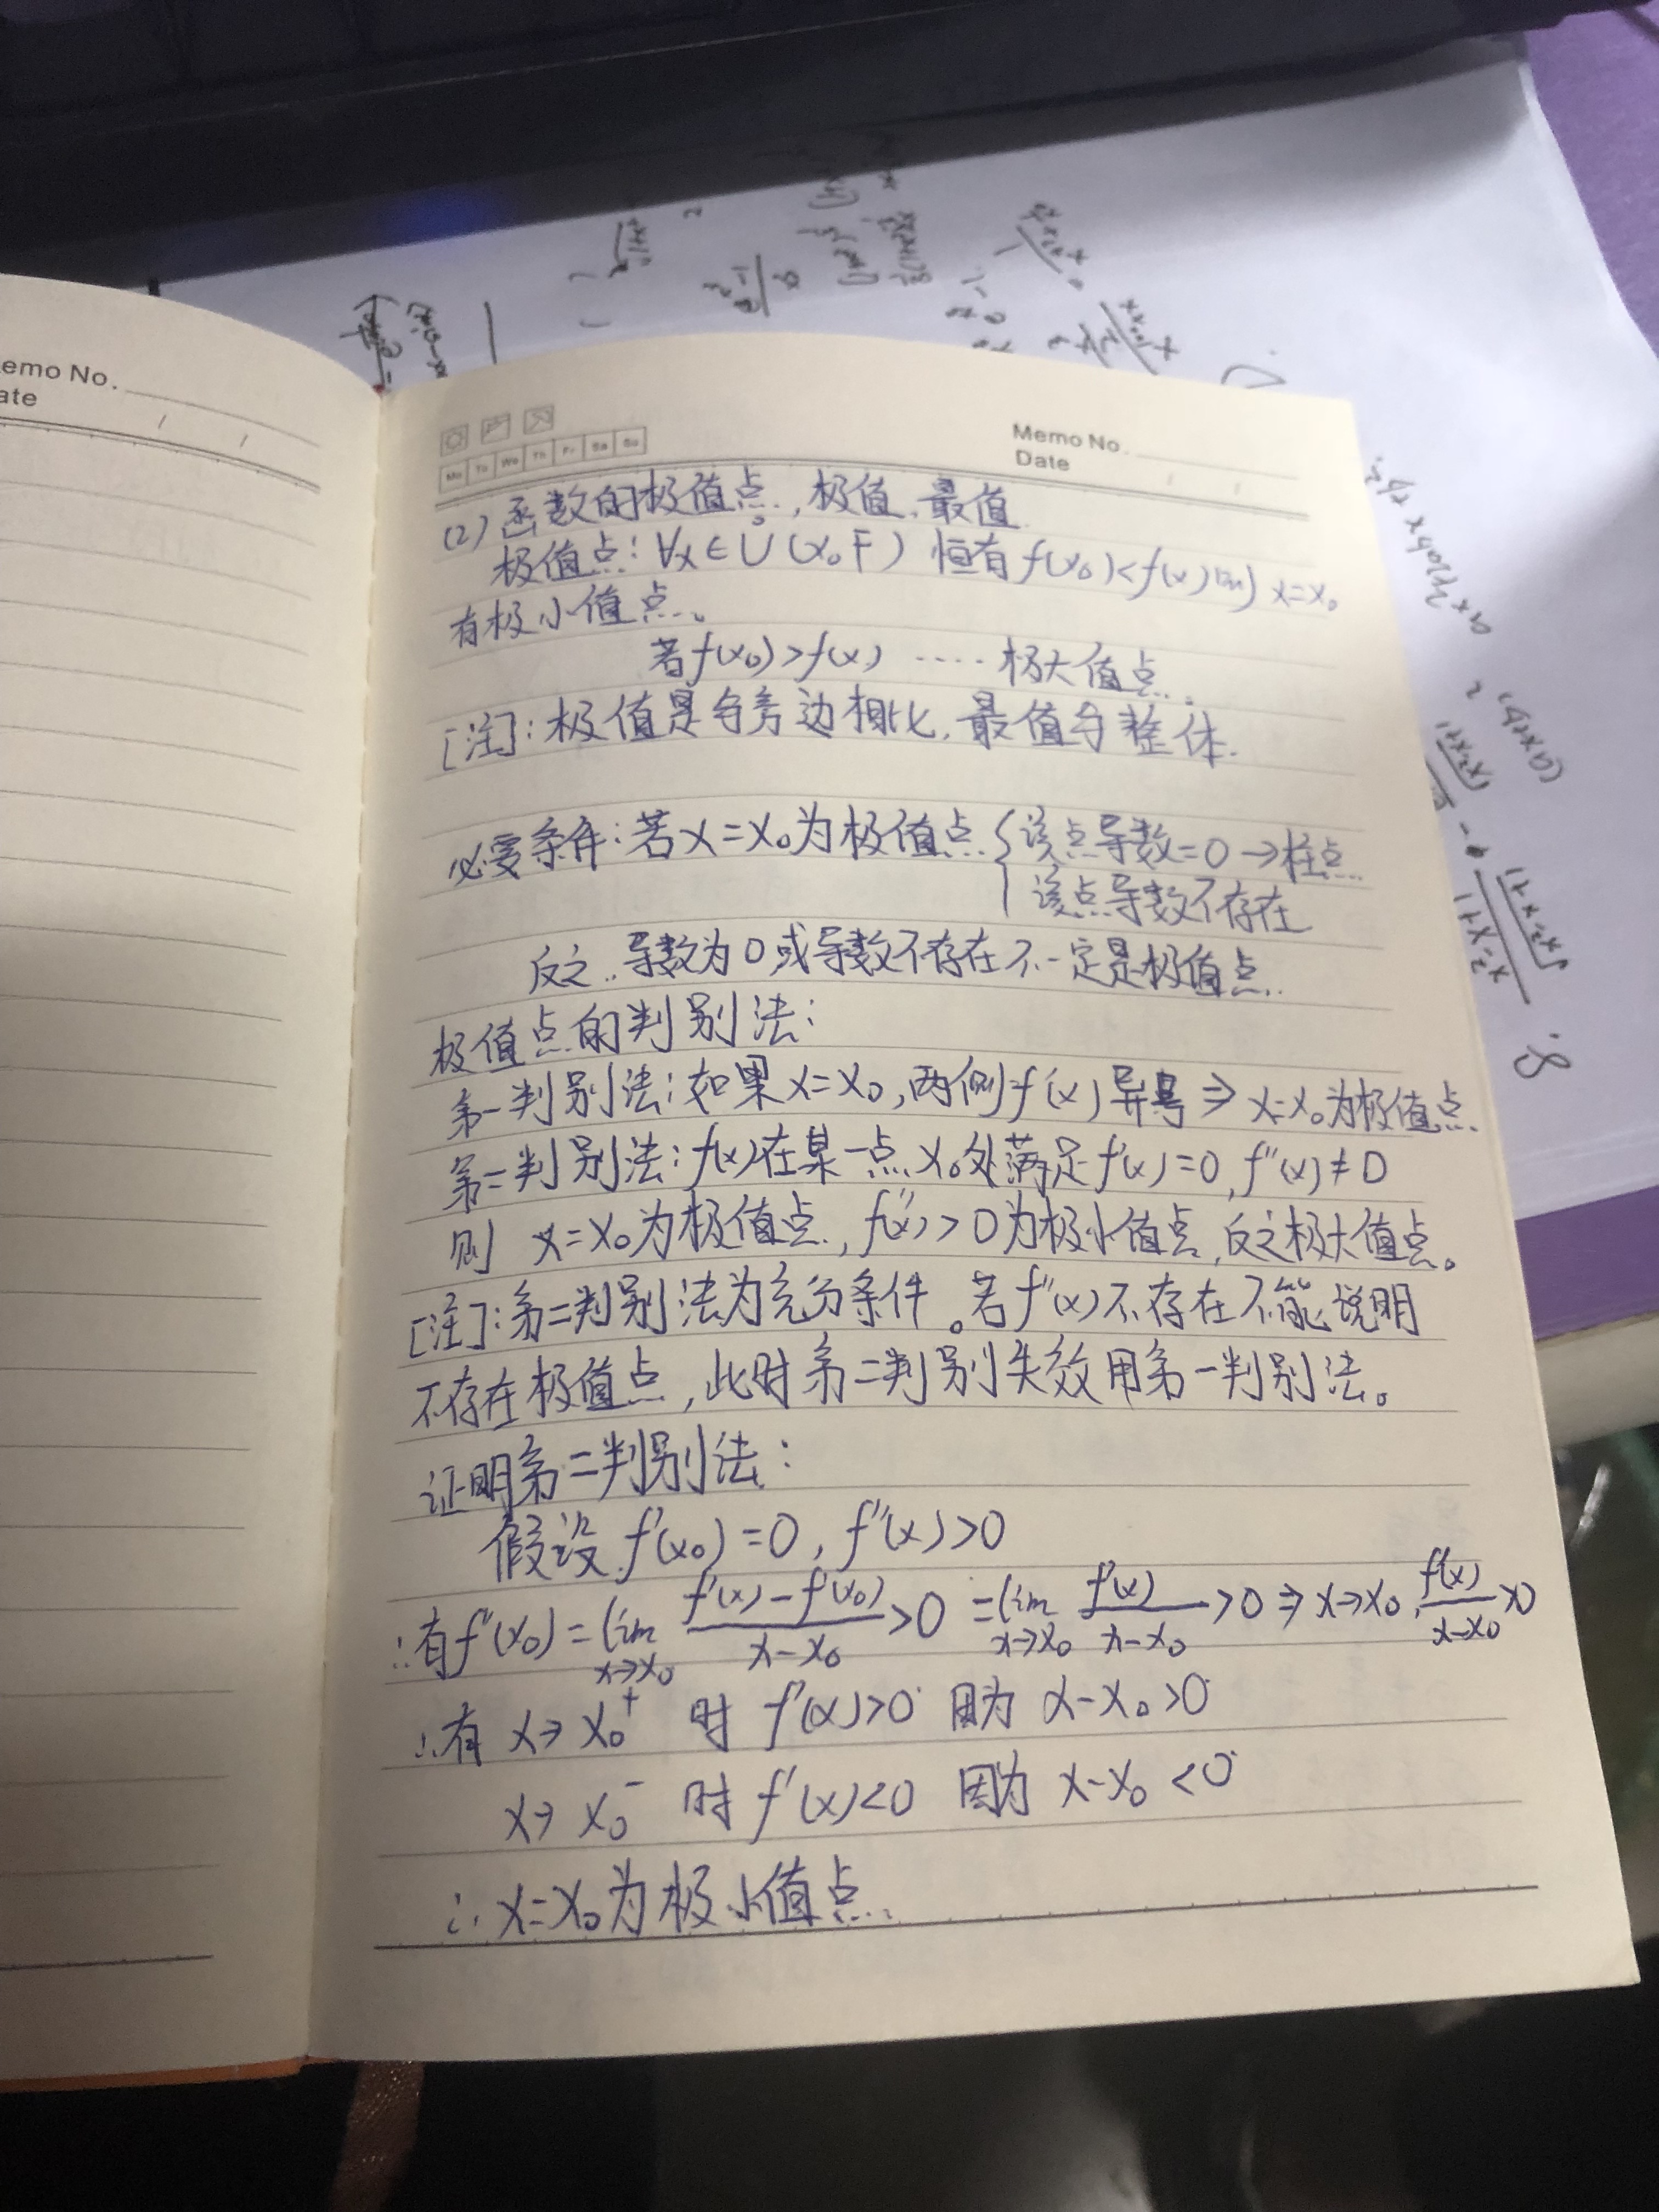 emo No.
ate
Memo No.
Date
Mo Tu We Th Fr Sa Su
(2) 函数的极值点, 极值, 最值
极值点: ∀x∈U(x₀ F) 恒有 f(x₀)<f(x) 则 x=x₀
有极小值点。
若f(x₀)>f(x) ····· 极大值点.
[注]: 极值是与旁边相比, 最值与整体.
必要条件: 若x=x₀为极值点 { 该点导数=0 →驻点
该点导数不存在
反之, 导数为0或导数不存在不一定是极值点.
极值点的判别法:
第一判别法: 如果x=x₀, 两侧f'(x)异号 ⇒ x=x₀为极值点.
第二判别法: f(x)在某一点x₀处满足f'(x)=0, f''(x)≠0
则 x=x₀为极值点, f''(x)>0为极小值点, 反之极大值点。
[注]: 第二判别法为充分条件。若f''(x)不存在不能说明
不存在极值点, 此时第二判别失效用第一判别法。
证明第二判别法:
假设 f'(x₀)=0, f''(x)>0
∴有f''(x₀)=lim x→x₀ (f'(x)-f'(x₀))/(x-x₀) >0 =lim x→x₀ f'(x)/(x-x₀) >0 ⇒ x→x₀, f'(x)/(x-x₀) >0
∴有 x→x₀⁺ 时 f'(x)>0 因为 x-x₀>0
x→x₀⁻ 时 f'(x)<0 因为 x-x₀<0
∴ x=x₀为极小值点.